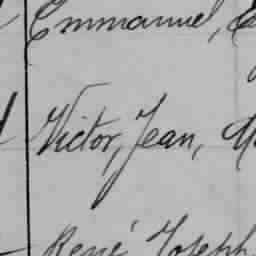 Emmanuel,
Victor, Jean,
René Joseph